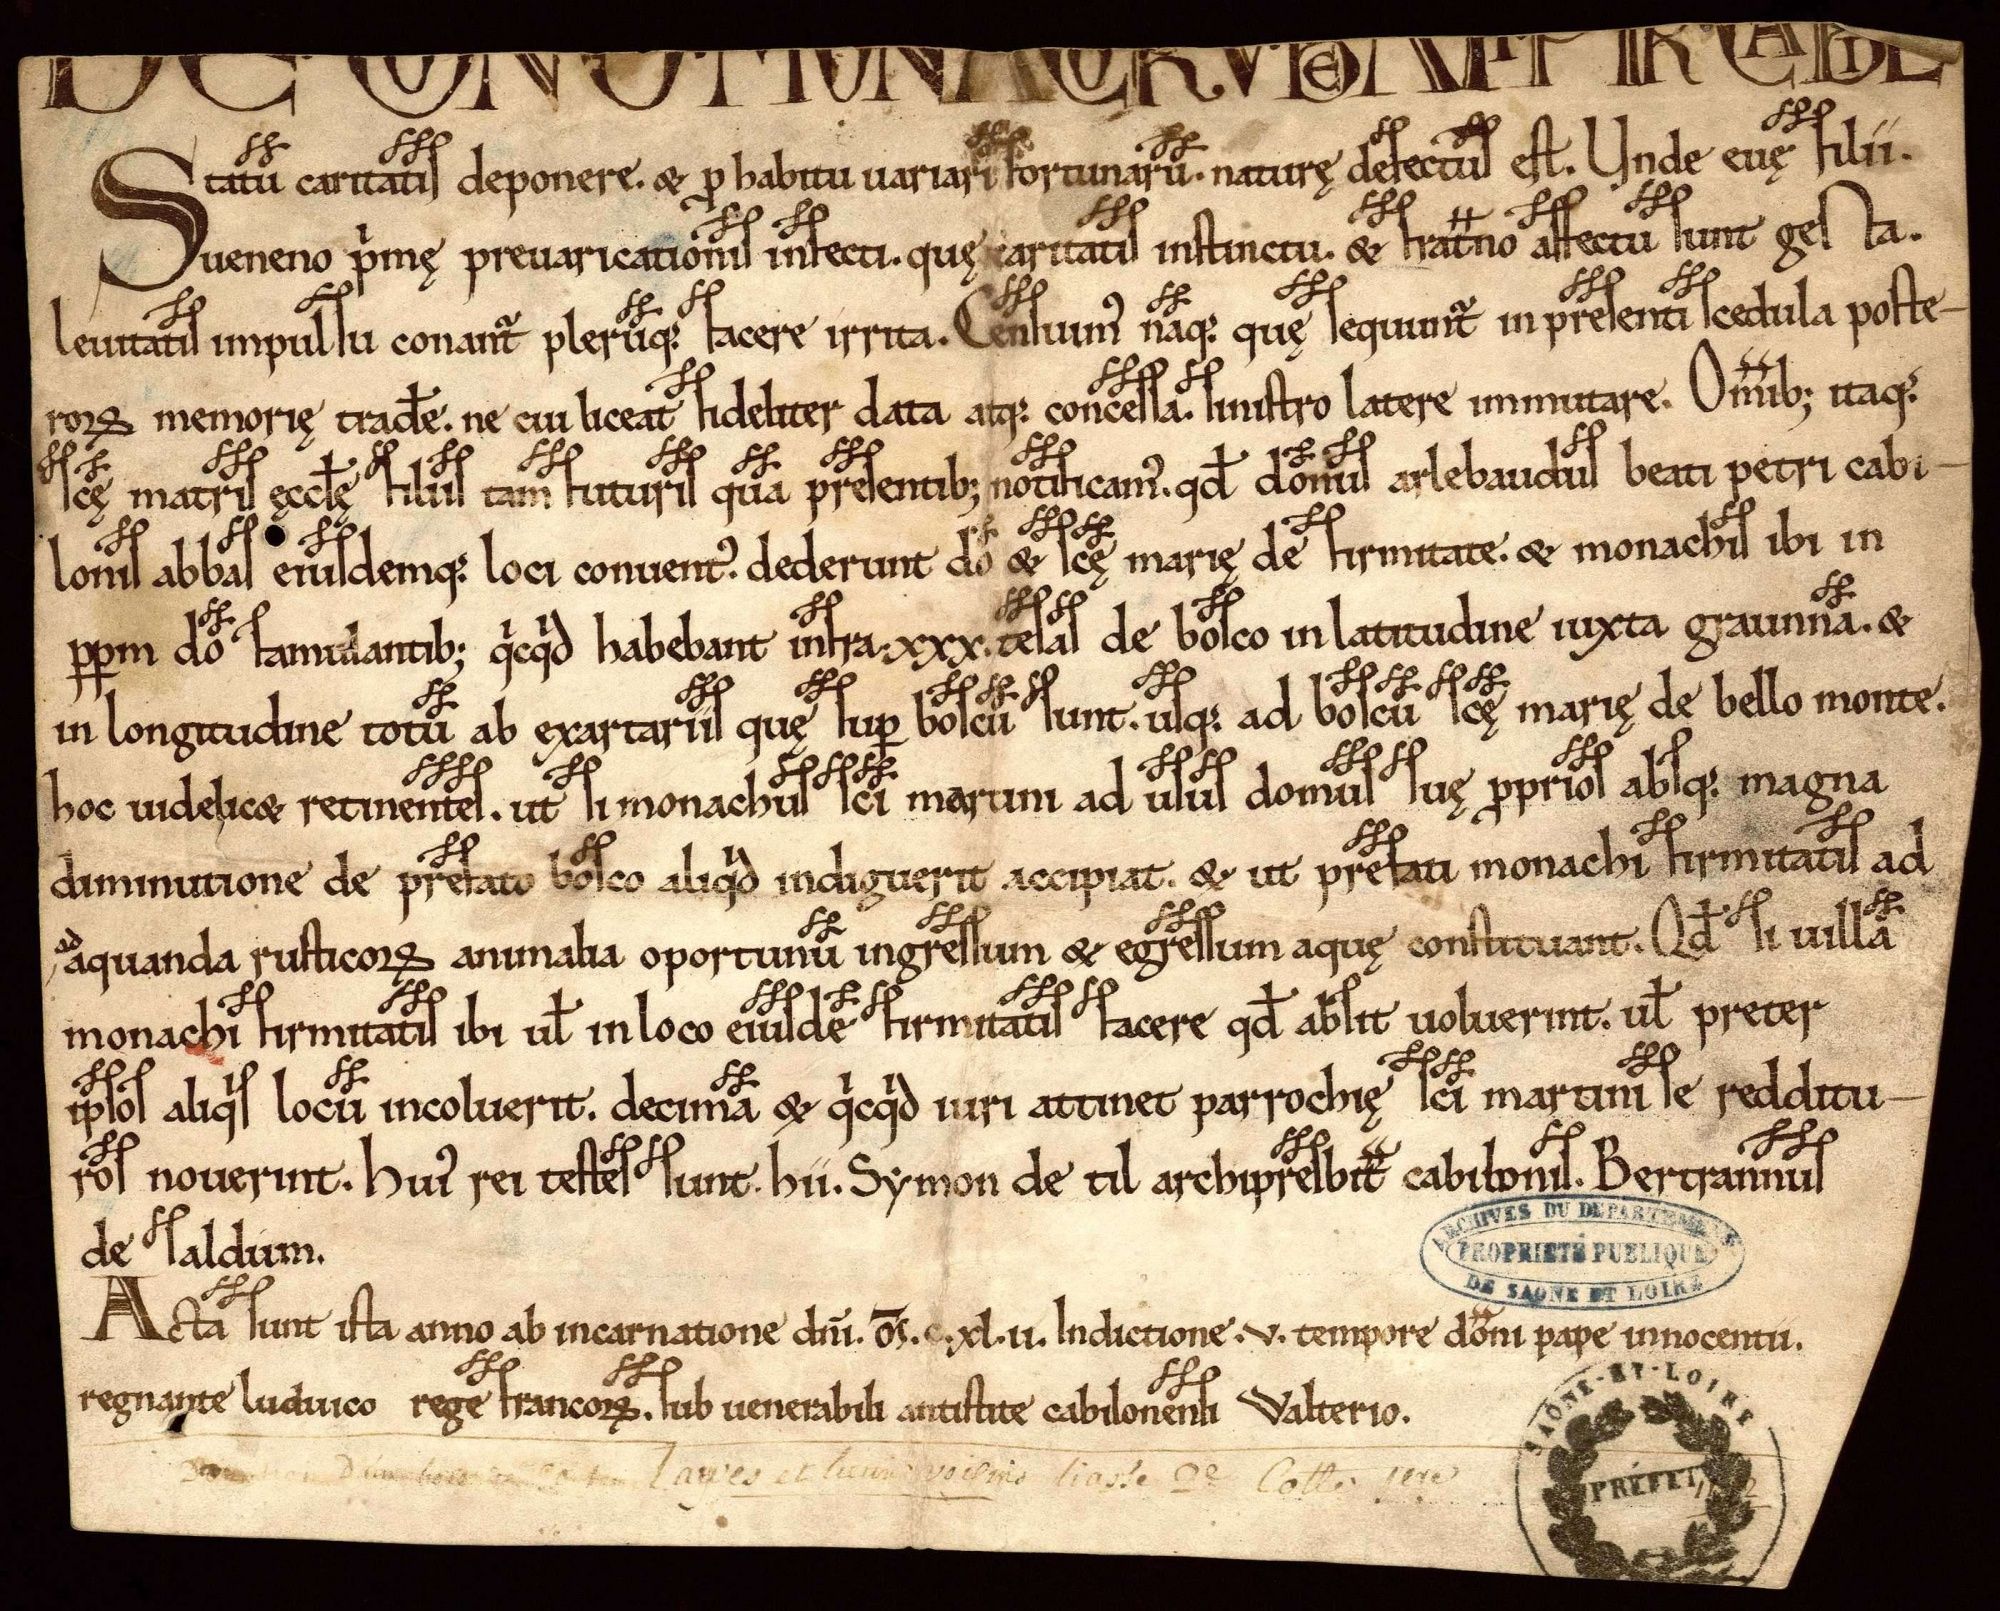 Statū caritatis deponere. & p habitu uariari fortunarū. naturę defectus est. Vnde euę filii.
ueneno pͥmę preuaricationis infecti. quę caritatis instinctu. & frat̄no affectu sunt gesta.
leuitatis impulsu conant᷑ plerūq; facere irrita. Censuimꝰ nāq; quę sequunt᷑ in presenti scedula poste-
roꝝ memorię trad̄e. ne cui liceat fideliter data atq; concessa. sinistro latere immutare. Om̄ib; itaq;
scę matris ęccłę filiis tam futuris quā presentib; notificamꝰ. qđ dōnus arlebaudus beati petri cabi-
lonis abbas eiusdemq; loci conuentꝰ. dederunt dō & scę marię de firmitate. & monachis ibi in
ꝑꝑm dō famulantib; qͥcqͥd habebant infra .xxx. tesas de bosco in latitudine iuxta graunnā. &
in longitudine totū ab exartariis quę suꝑ boscū sunt. usq; ad boscū scę marię de bello monte.
hoc uidelic& retinentes. ut si monachus scī martini ad usus domus suę ꝓprios absq; magna
diminutione de prefato bosco aliqͥd indiguerit accipiat. & ut prefati monachi firmitatis ad
adaquanda rusticoꝝ animalia oportunū ingressum & egressum aquę constituant. Qđ si uillā
monachi firmitatis ibi uł in loco eiusdē firmitatis facere qđ absit uoluerint. uł preter
ipsos aliqͥs locū incoluerit. decimā & qͥcqͥd iuri attinet parrochię scī martini se redditu-
ros nouerint. Huiꝰ rei testes sunt. hii. Symon de til archipresbit̄ cabilonis. Bertrannus
de saldum.
ARCHIVES DU DÉPARTEMENT
PROPRIÉTÉ PUBLIQUE
DE SAONE ET LOIRE
Acta sunt ista anno ab incarnatione dn̄i. ō. c. xl. ii. Indictione .v. tempore dōni pape innocentii.
regnante luduico rege francoꝝ. sub uenerabili antistite cabilonensi Valterio.
et lieux voisins liasse 2e Cotte 1ere
SAÔNE-ET-LOIRE
PRÉFET